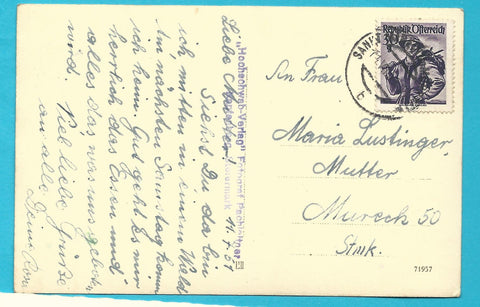 Liebe
Siehst Du da bin
ich mitten in einem Wald
Am nächsten Samstag komm
ich heim. Gut geht es mir
herrlich das Essen und
alles das was uns geboten
wird. Viel liebe Grüße
an alle
Deine
11. 7. 51
"Hochschwab-Verlag"
Republik Österreich
SANKT
An Frau
Maria Lustinger,
Mutter
Mureck 50
Stmk.
71957